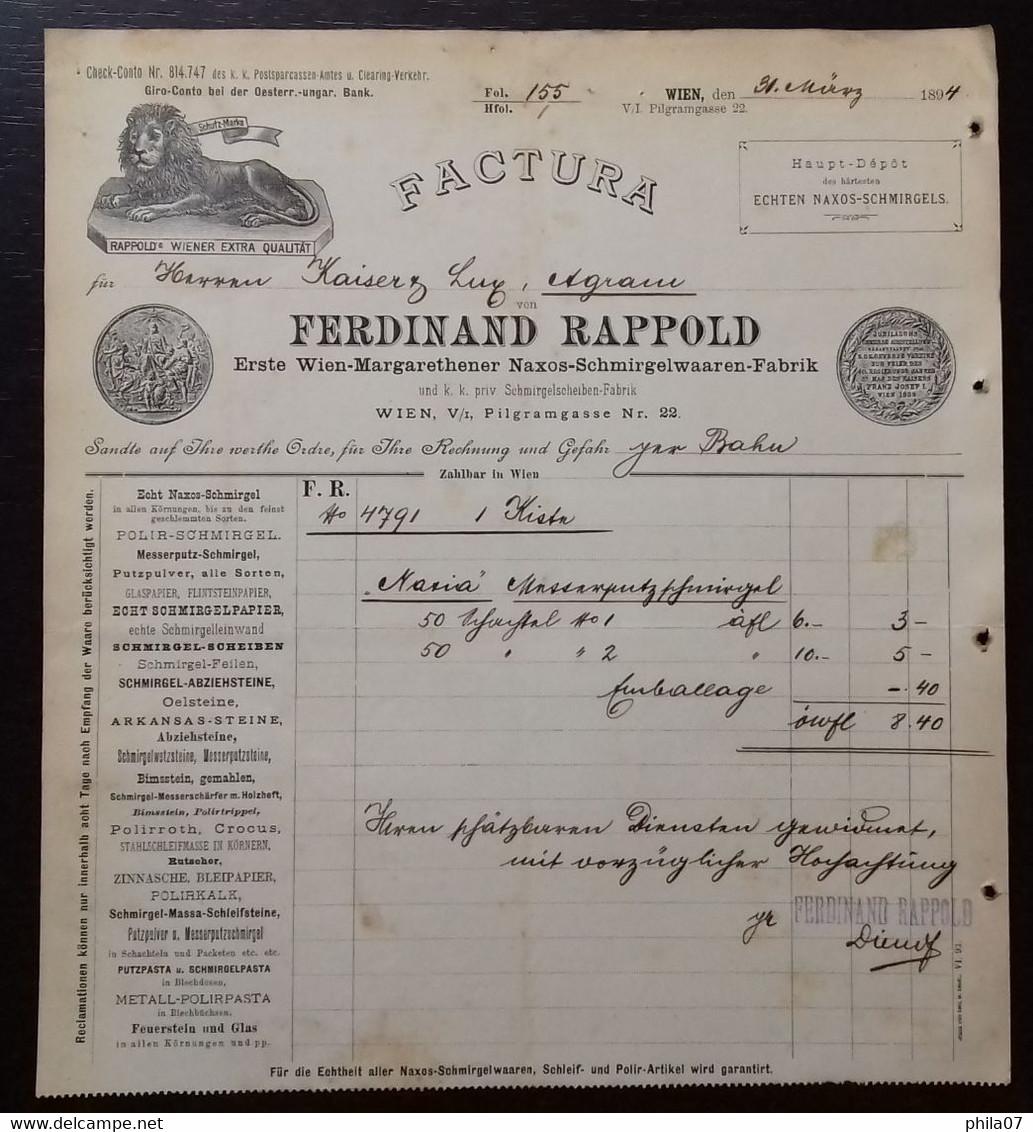 Check-Conto Nr. 814.747 des k. k. Postsparcassen-Amtes u. Clearing-Verkehr.
Giro-Conto bei der Oesterr.-ungar. Bank.
Fol. 155
Hfol. 1
WIEN, den 31. März 1894
V/I. Pilgramgasse 22.
Schutz-Marke
RAPPOLD's WIENER EXTRA QUALITÄT
FACTURA
Haupt-Dépôt
des härtesten
ECHTEN NAXOS-SCHMIRGELS.
für Herren Kaiser & Lux, Agram
von
FERDINAND RAPPOLD
Erste Wien-Margarethener Naxos-Schmirgelwaaren-Fabrik
und k. k. priv Schmirgelscheiben-Fabrik
WIEN, V/I, Pilgramgasse Nr. 22.
JUBILÄUMS
ZUR FEIER DES
FRANZ JOSEF I.
WIEN 1888
Sandte auf Ihre werthe Ordre, für Ihre Rechnung und Gefahr per Bahn
Zahlbar in Wien
Reclamationen können nur innerhalb acht Tage nach Empfang der Waare berücksichtigt werden.
Echt Naxos-Schmirgel
in allen Körnungen, bis zu den feinst
geschlemmten Sorten.
POLIR-SCHMIRGEL.
Messerputz-Schmirgel,
Putzpulver, alle Sorten,
GLASPAPIER, FLINTSTEINPAPIER,
ECHT SCHMIRGELPAPIER,
echte Schmirgelleinwand
SCHMIRGEL-SCHEIBEN
Schmirgel-Feilen,
SCHMIRGEL-ABZIEHSTEINE,
Oelsteine,
ARKANSAS-STEINE,
Abziehsteine,
Schmirgelwetzsteine, Messerputzsteine,
Bimsstein, gemahlen,
Schmirgel-Messerschärfer m. Holzheft,
Bimsstein, Polirtrippel,
Polirroth, Crocus,
STAHLSCHLEIFMASSE IN KÖRNERN,
Rutscher,
ZINNASCHE, BLEIPAPIER,
POLIRKALK,
Schmirgel-Massa-Schleifsteine,
Putzpulver u. Messerputzschmirgel
in Schachteln und Packeten etc. etc.
PUTZPASTA u. SCHMIRGELPASTA
in Blechdosen,
METALL-POLIRPASTA
in Blechbüchsen.
Feuerstein und Glas
in allen Körnungen und pp.
F. R.
No 4791 1 Kiste
„Naxia" Messerputzschmirgel
50 Schachtel No 1 à fl 6.- 3 -
50 " " 2 " 10.- 5 -
Emballage -.40
öwfl 8.40
Ihren schätzbaren Diensten gewidmet,
mit vorzüglicher Hochachtung
pr FERDINAND RAPPOLD
Für die Echtheit aller Naxos-Schmirgelwaaren, Schleif- und Polir-Artikel wird garantirt.
delcampe.net
phila07